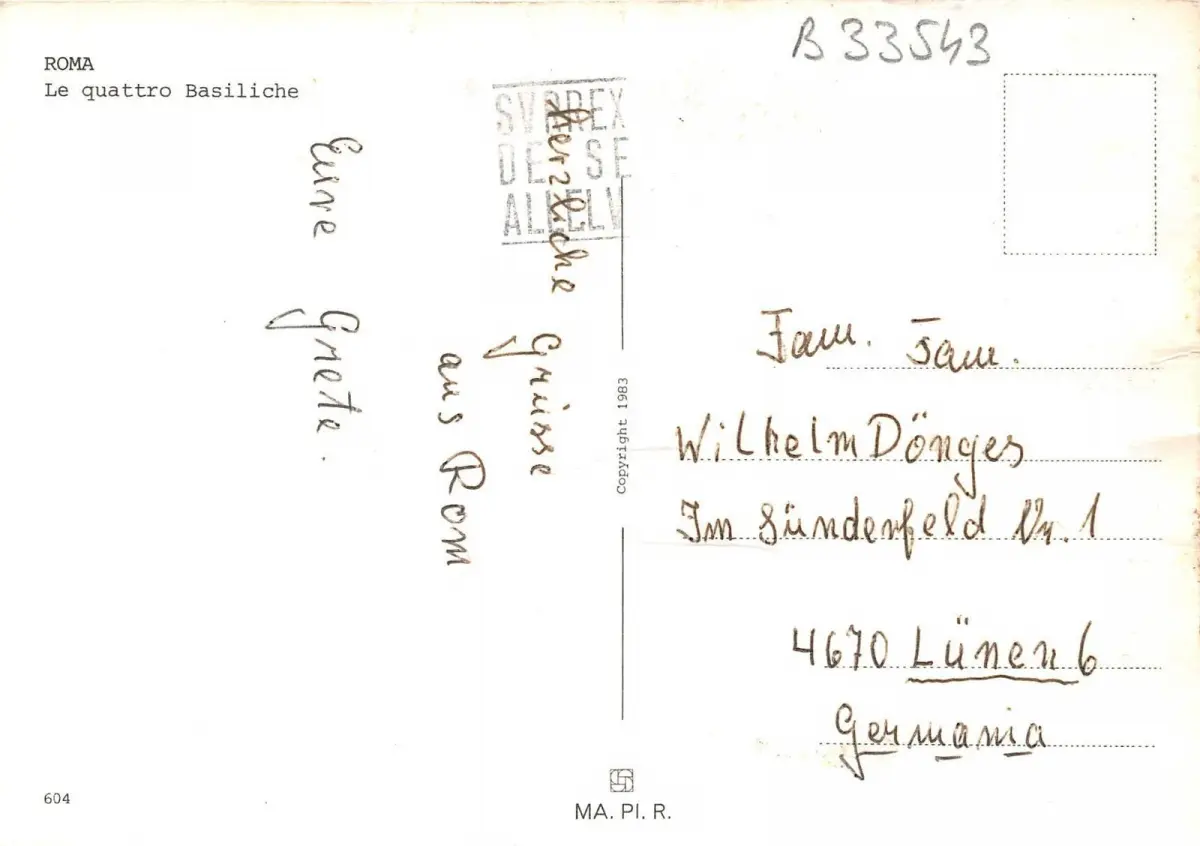 ROMA
Le quattro Basiliche
B 33543
Herzliche Grüsse
aus Rom
Eure Grete.
Copyright 1983
Fam. Fam.
Wilhelm Dönges
Im Sünderfeld Nr. 1
4670 Lünen 6
Germania
604
MA. PI. R.